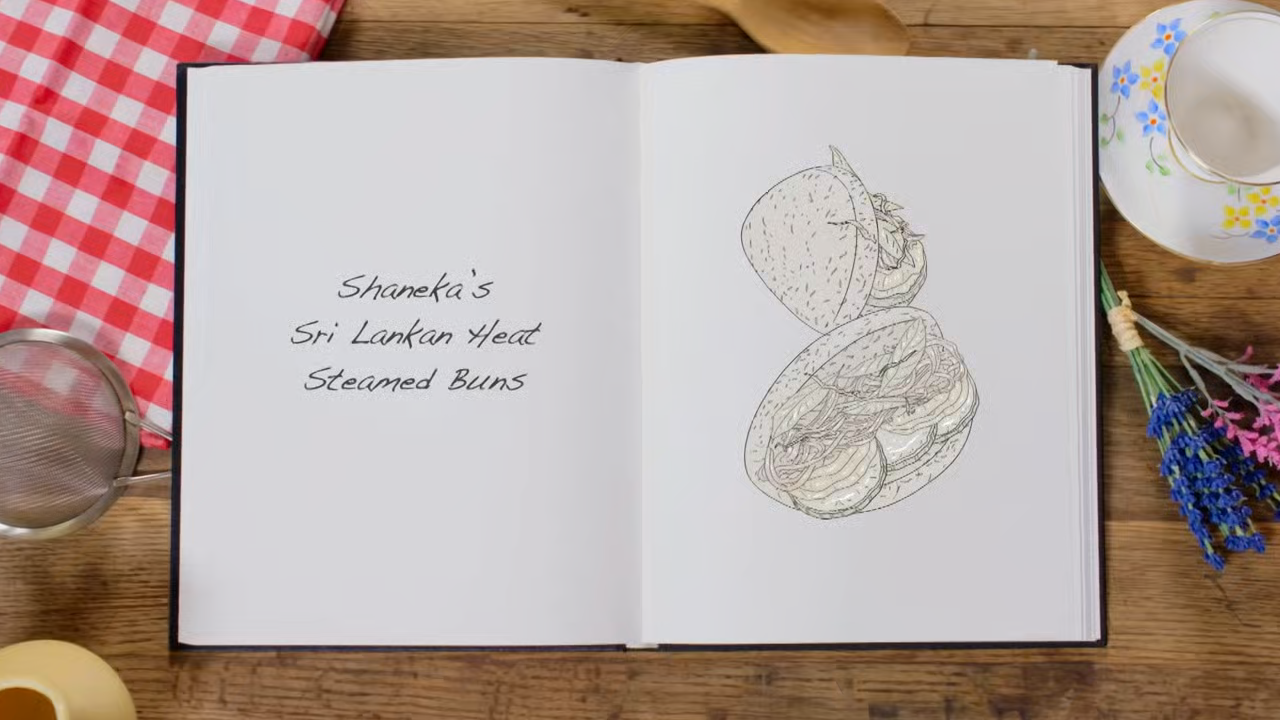 Shaneka's
Sri Lankan Heat
Steamed Buns